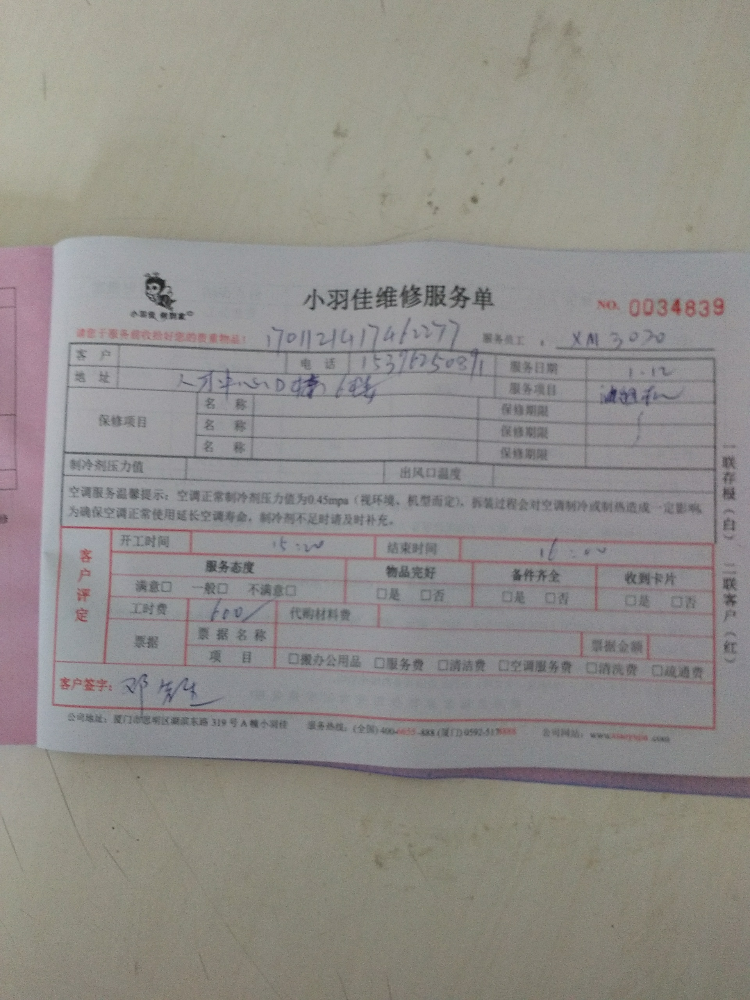 小羽佳维修服务单
NO. 0034839
请您于服务前收拾好您的贵重物品! 1701121417462277 服务员工: XM3020
客户 电话 服务日期 1.12
地址 人才中心D 服务项目
保修项目 名称 保修期限
名称 保修期限
名称 保修期限
制冷剂压力值 出风口温度
空调服务温馨提示:空调正常制冷剂压力值为0.45mpa(视环境、机型而定),拆装过程会对空调制冷或制热造成一定影响,
为确保空调正常使用延长空调寿命,制冷剂不足时请及时补充。
客户评定
开工时间 15:20 结束时间 16:00
服务态度 物品完好 备件齐全 收到卡片
满意□ 一般□ 不满意□ □是 □否 □是 □否 □是 □否
工时费 600/ 代购材料费
票据 票据名称 票据金额
项目 □搬办公用品 □服务费 □清洁费 □空调服务费 □清洗费 □疏通费
客户签字: 邓先生
公司地址:厦门市思明区湖滨东路 319 号 A 幢小羽佳 服务热线:(全国)400-6655-888 (厦门)0592-5178888 公司网站:
一联存根(白) 二联客户(红)